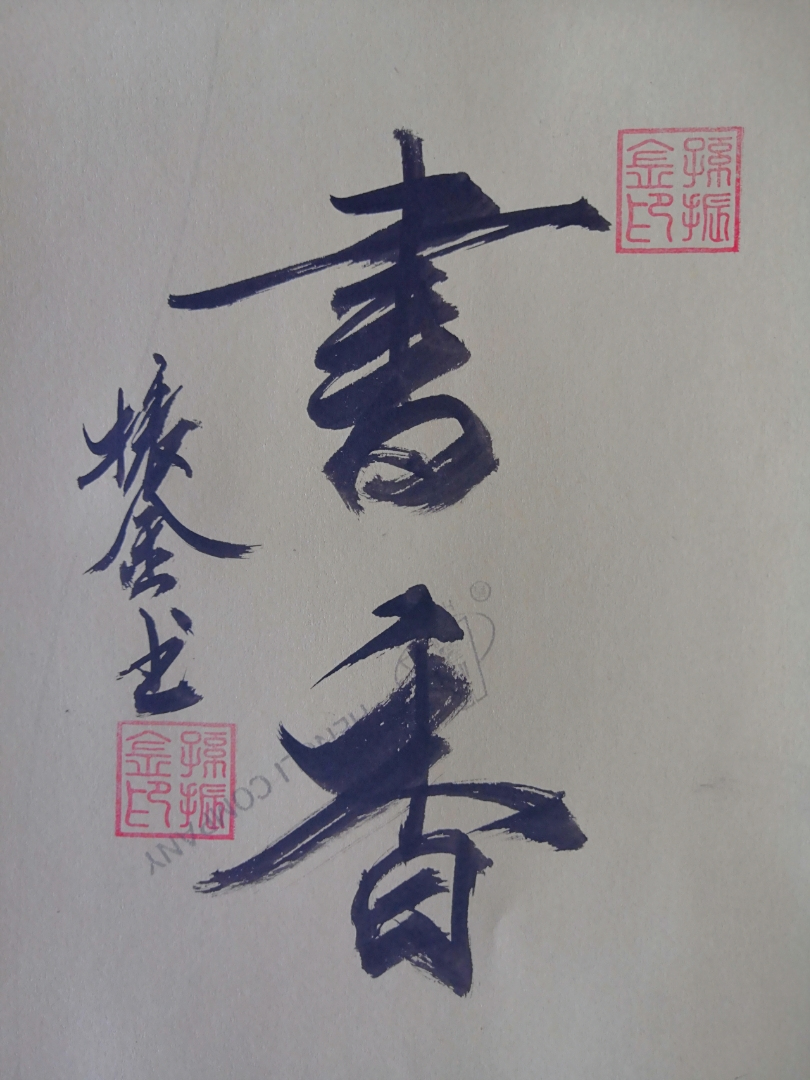 書香
振金书
孫振金印
孫振金印
COMPANY
®